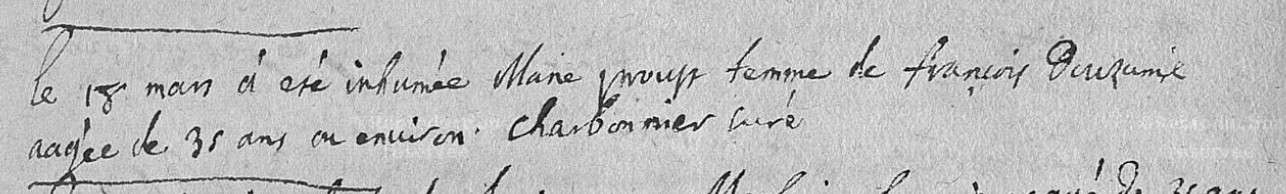 le 18 mars a eté inhumée Marie femme de françois Douzamie
aagée de 35 ans ou environ. Charbonnier curé